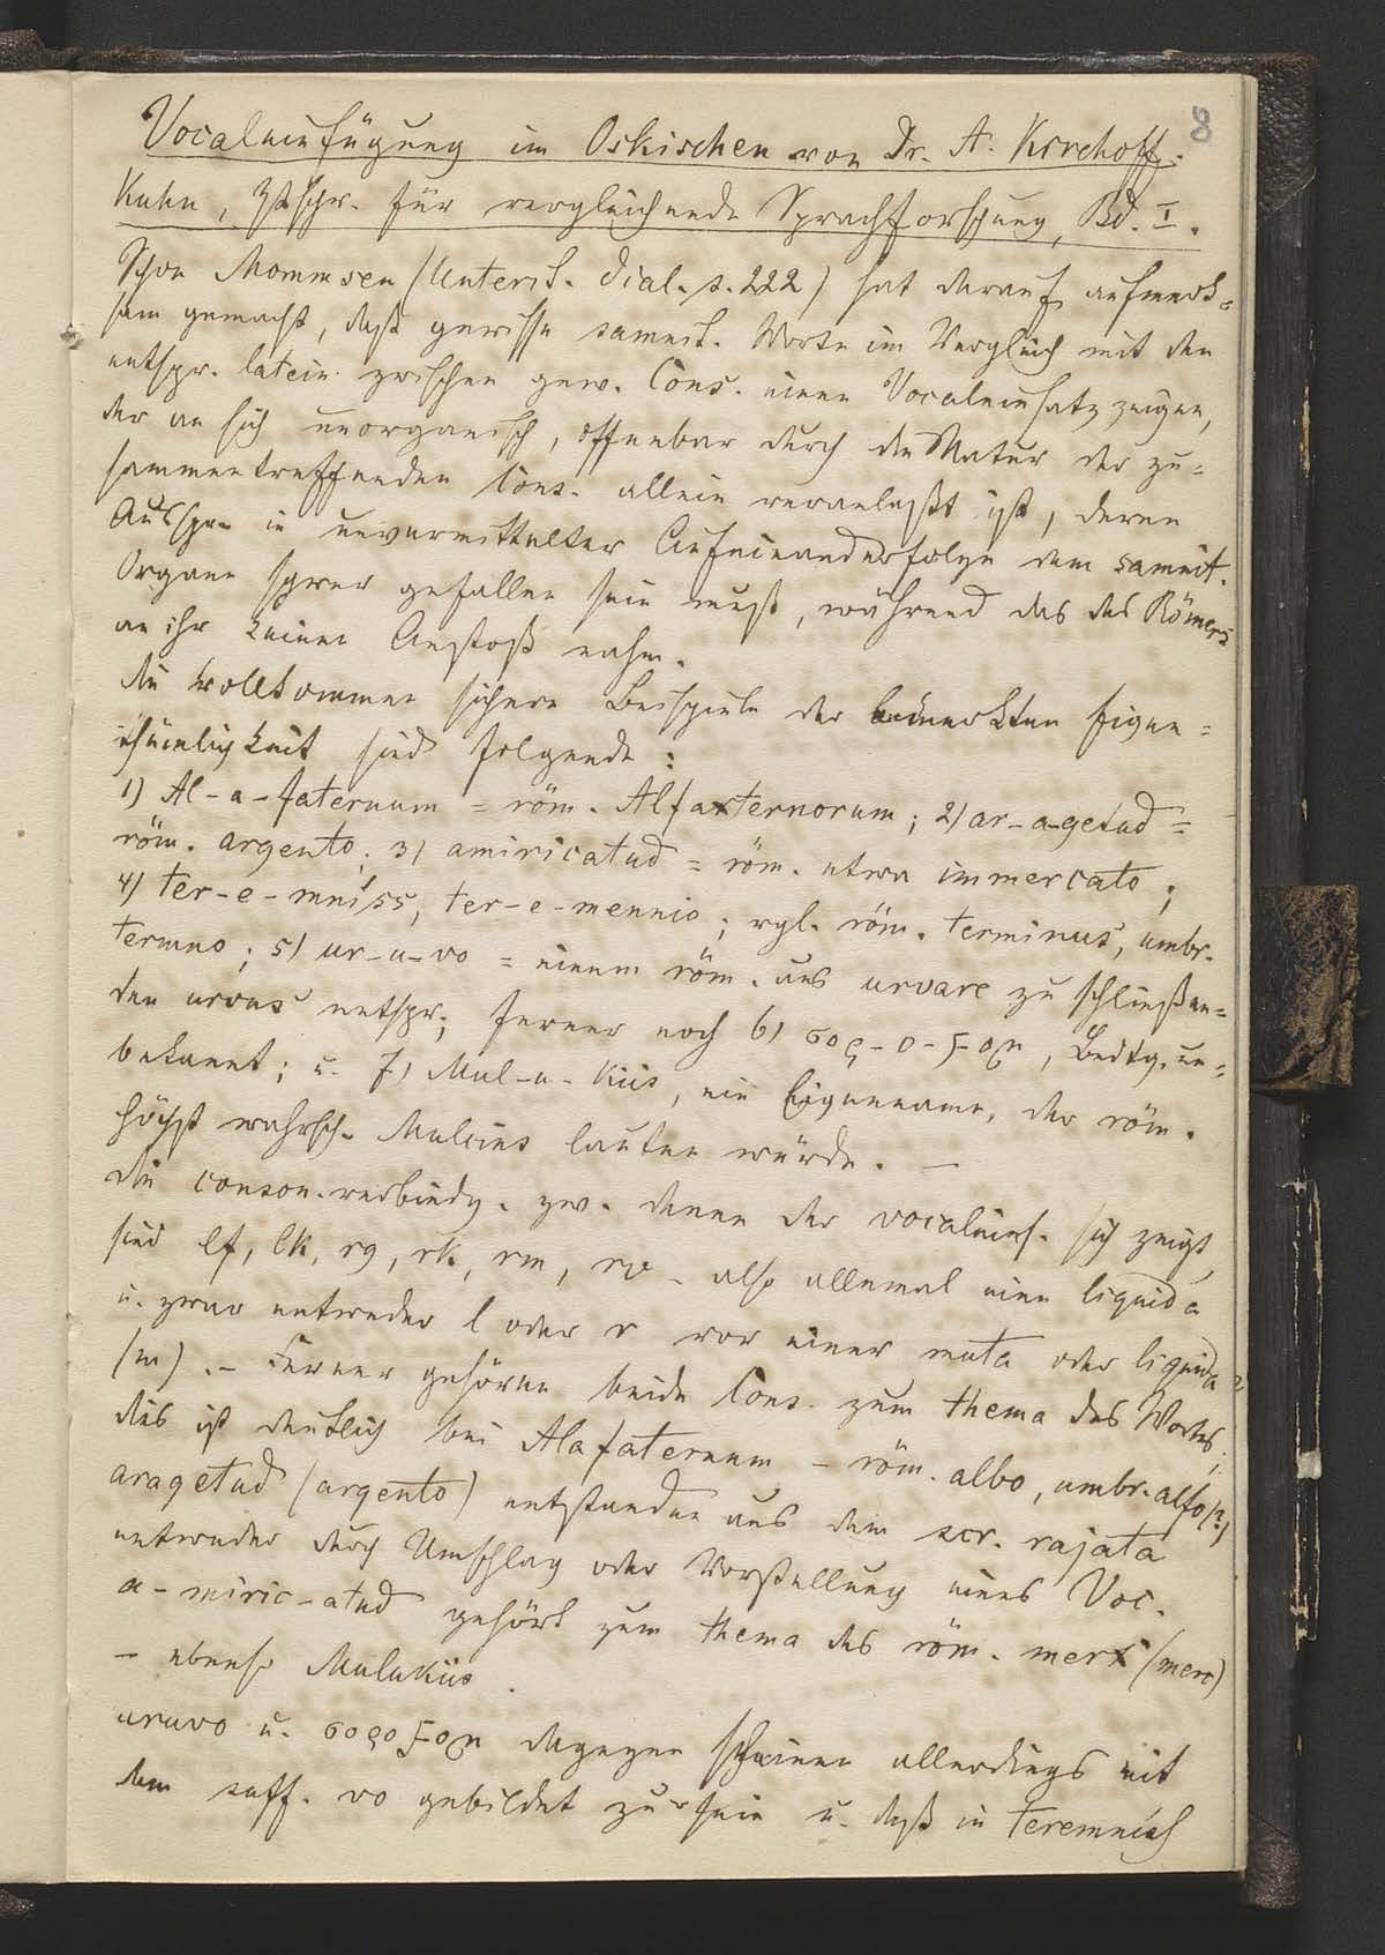 8
Vocaleinfügung im Oskischen von Dr. A. Kirchoff.
Kuhn, Ztschr. für vergleichende Sprachforschung, Bd. I.
Schon Mommsen (Unterit. Dial. s. 222) hat darauf aufmerk=
sam gemacht, daß gewisse samnit. Worte im Vergleich mit den
entspr. latein. zwischen gew. Cons. einen Vocaleinsatz zeigen,
der an sich unorganisch, offenbar durch die Natur der zu=
sammentreffenden Cons. allein veranlaßt ist, deren
Ausspr. in unvermittelter Aufeinanderfolge dem samnit.
Organe schwer gefallen sein muß, während das des Römers
an ihr keinen Anstoß nahm.
Die vollkommen sichern Beispiele der bemerkten Eigen=
thümlichkeit sind folgende:
1) Al-a-faternum = röm. Alfaternorum; 2) ar-a-getud =
röm. argento; 3) amiricatud = röm. etwa immercato;
4) ter-e-mníss, ter-e-mennio; vgl. röm. terminus, umbr.
termno; 5) ur-u-vo = einem röm. aus urvare zu schließen=
den urvus entspr.; ferner noch 6) σορ-ο-ϝομ, Bedtg. un=
bekannt; u. 7) Mul-u-kiis, ein Eigenname, der röm.
höchst wahrsch. Mulcius lauten würde. —
Die conson.verbindg. zw. denen der vocaleins. sich zeigt,
sind lf, lk, rg, rk, rm, rv - also allemal eine liquida
u. zwar entweder l oder r vor einer muta oder liquida
(m). - Ferner gehören beide Cons. zum thema des Wortes;
dies ist deutlich bei Alafaternum - röm. albo, umbr. alfo (?)
aragetud (argento) entstanden aus dem scr. rajata
entweder durch Umschlag oder Vorstellung eines Voc.
a-miric-atud gehört zum thema des röm. merx (merc)
- ebenso Mulukiis.
uruvo u. σοροϝομ dagegen scheinen allerdings mit
dem suff. vo gebildet zu sein u. daß in teremníss